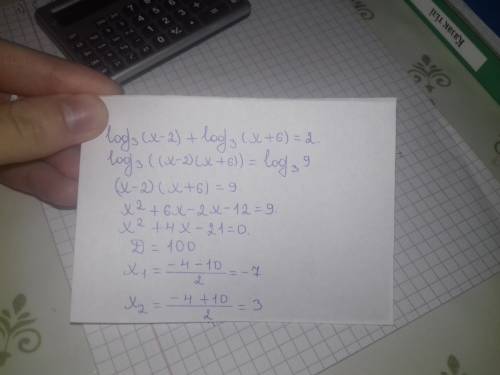 Қазақ тілі
log₃(x-2) + log₃(x+6) = 2.
log₃((x-2)(x+6)) = log₃9
(x-2)(x+6) = 9
x² + 6x - 2x - 12 = 9.
x² + 4x - 21 = 0.
D = 100
x₁ = \frac{-4-10}{2} = -7
x₂ = \frac{-4+10}{2} = 3